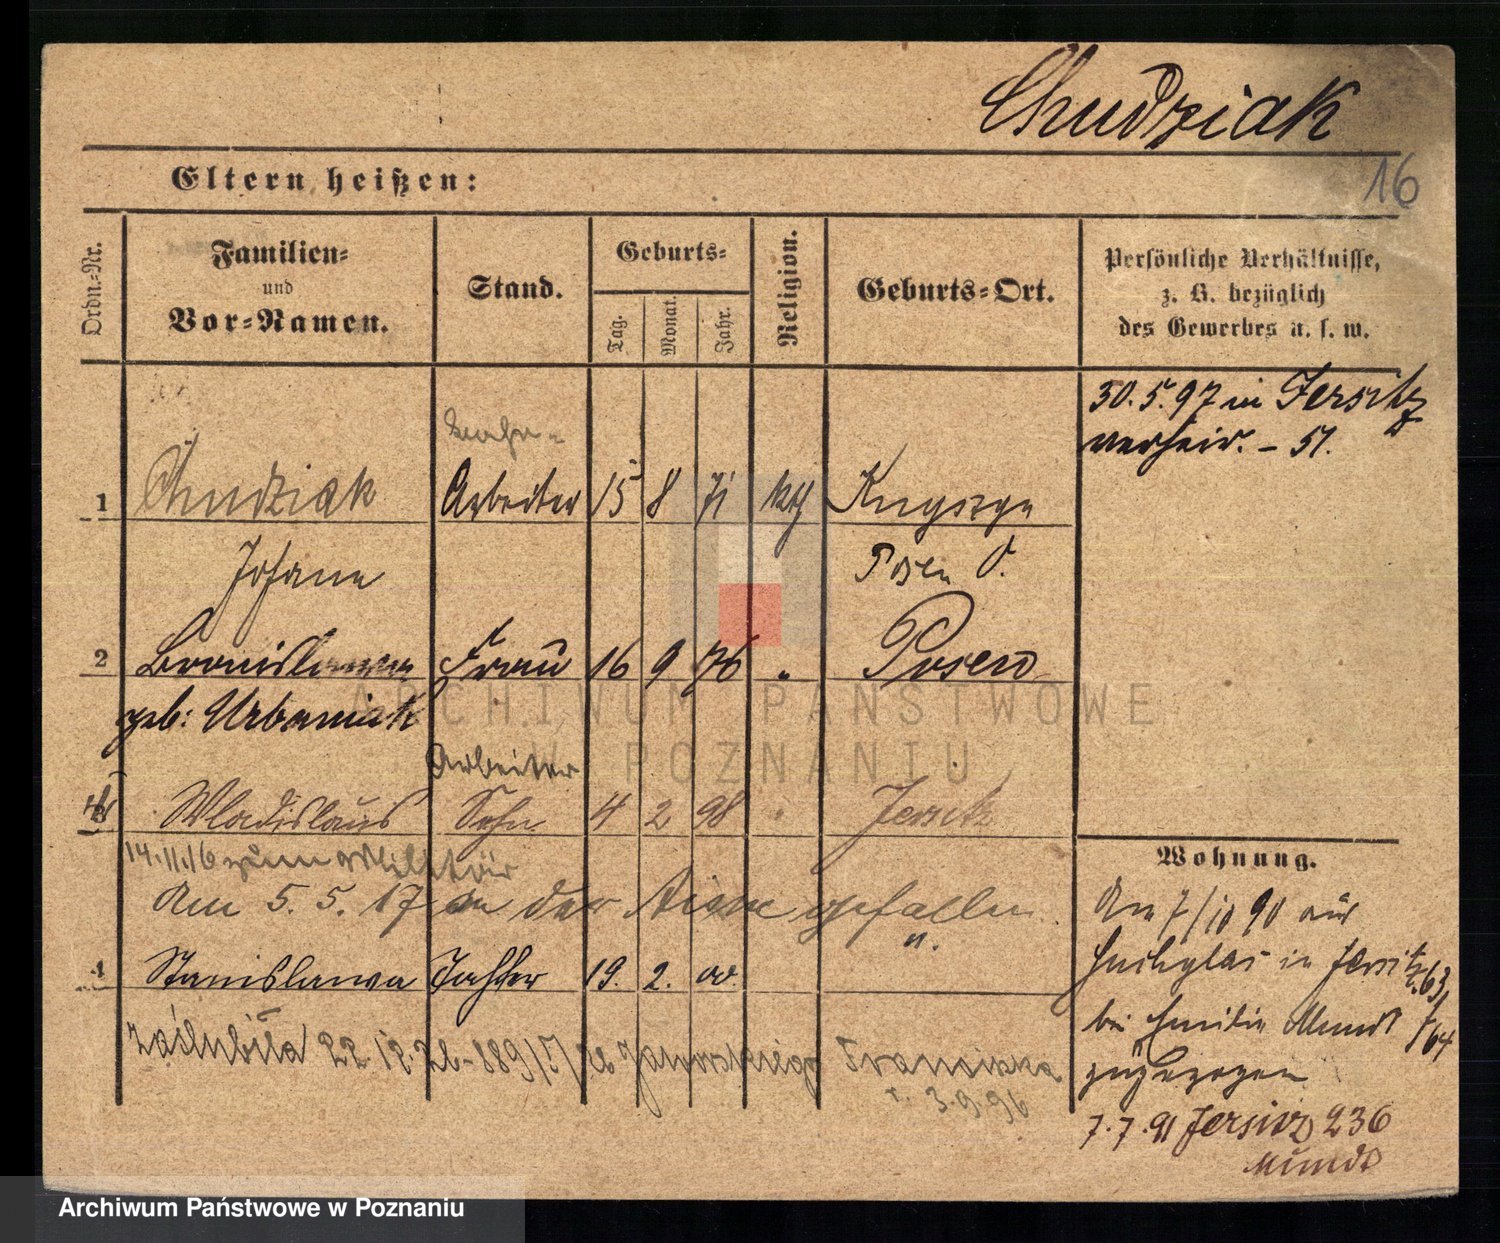 Chudziak
16
Eltern heißen:
Ordn.-Nr.
Familien-
und
Vor-Namen.
Stand.
Geburts-
Tag.
Monat.
Jahr.
Religion.
Geburts-Ort.
Persönliche Verhältnisse,
z. B. bezüglich
des Gewerbes u. s. w.
30.5.97 in Jersitz
verheir. – 51.
1 Chudziak Arbeiter 15 8 71 kth
Johann Posen O.
2 Bronislawa Frau 16 9 76 " Posen
geb: Urbaniak
Arbeiter
Wladislaus Sohn 4 2 98 " Jersitz
14.11.16 zum Militär
Am 5.5.17 an der Aisne gefallen
4 Stanislawa Tochter 19. 2. 00.
zaślubiła 22.12.26-889/V/ Jaworskiego Franciszka
r. 3.9.96
Wohnung.
Am 7/10 90 aus
in Jersitz 63/64
bei Emilie Mundt
zugezogen
7.7.91 Jersitz 236
Mundt
ARCHIWUM PAŃSTWOWE
W POZNANIU
Archiwum Państwowe w Poznaniu